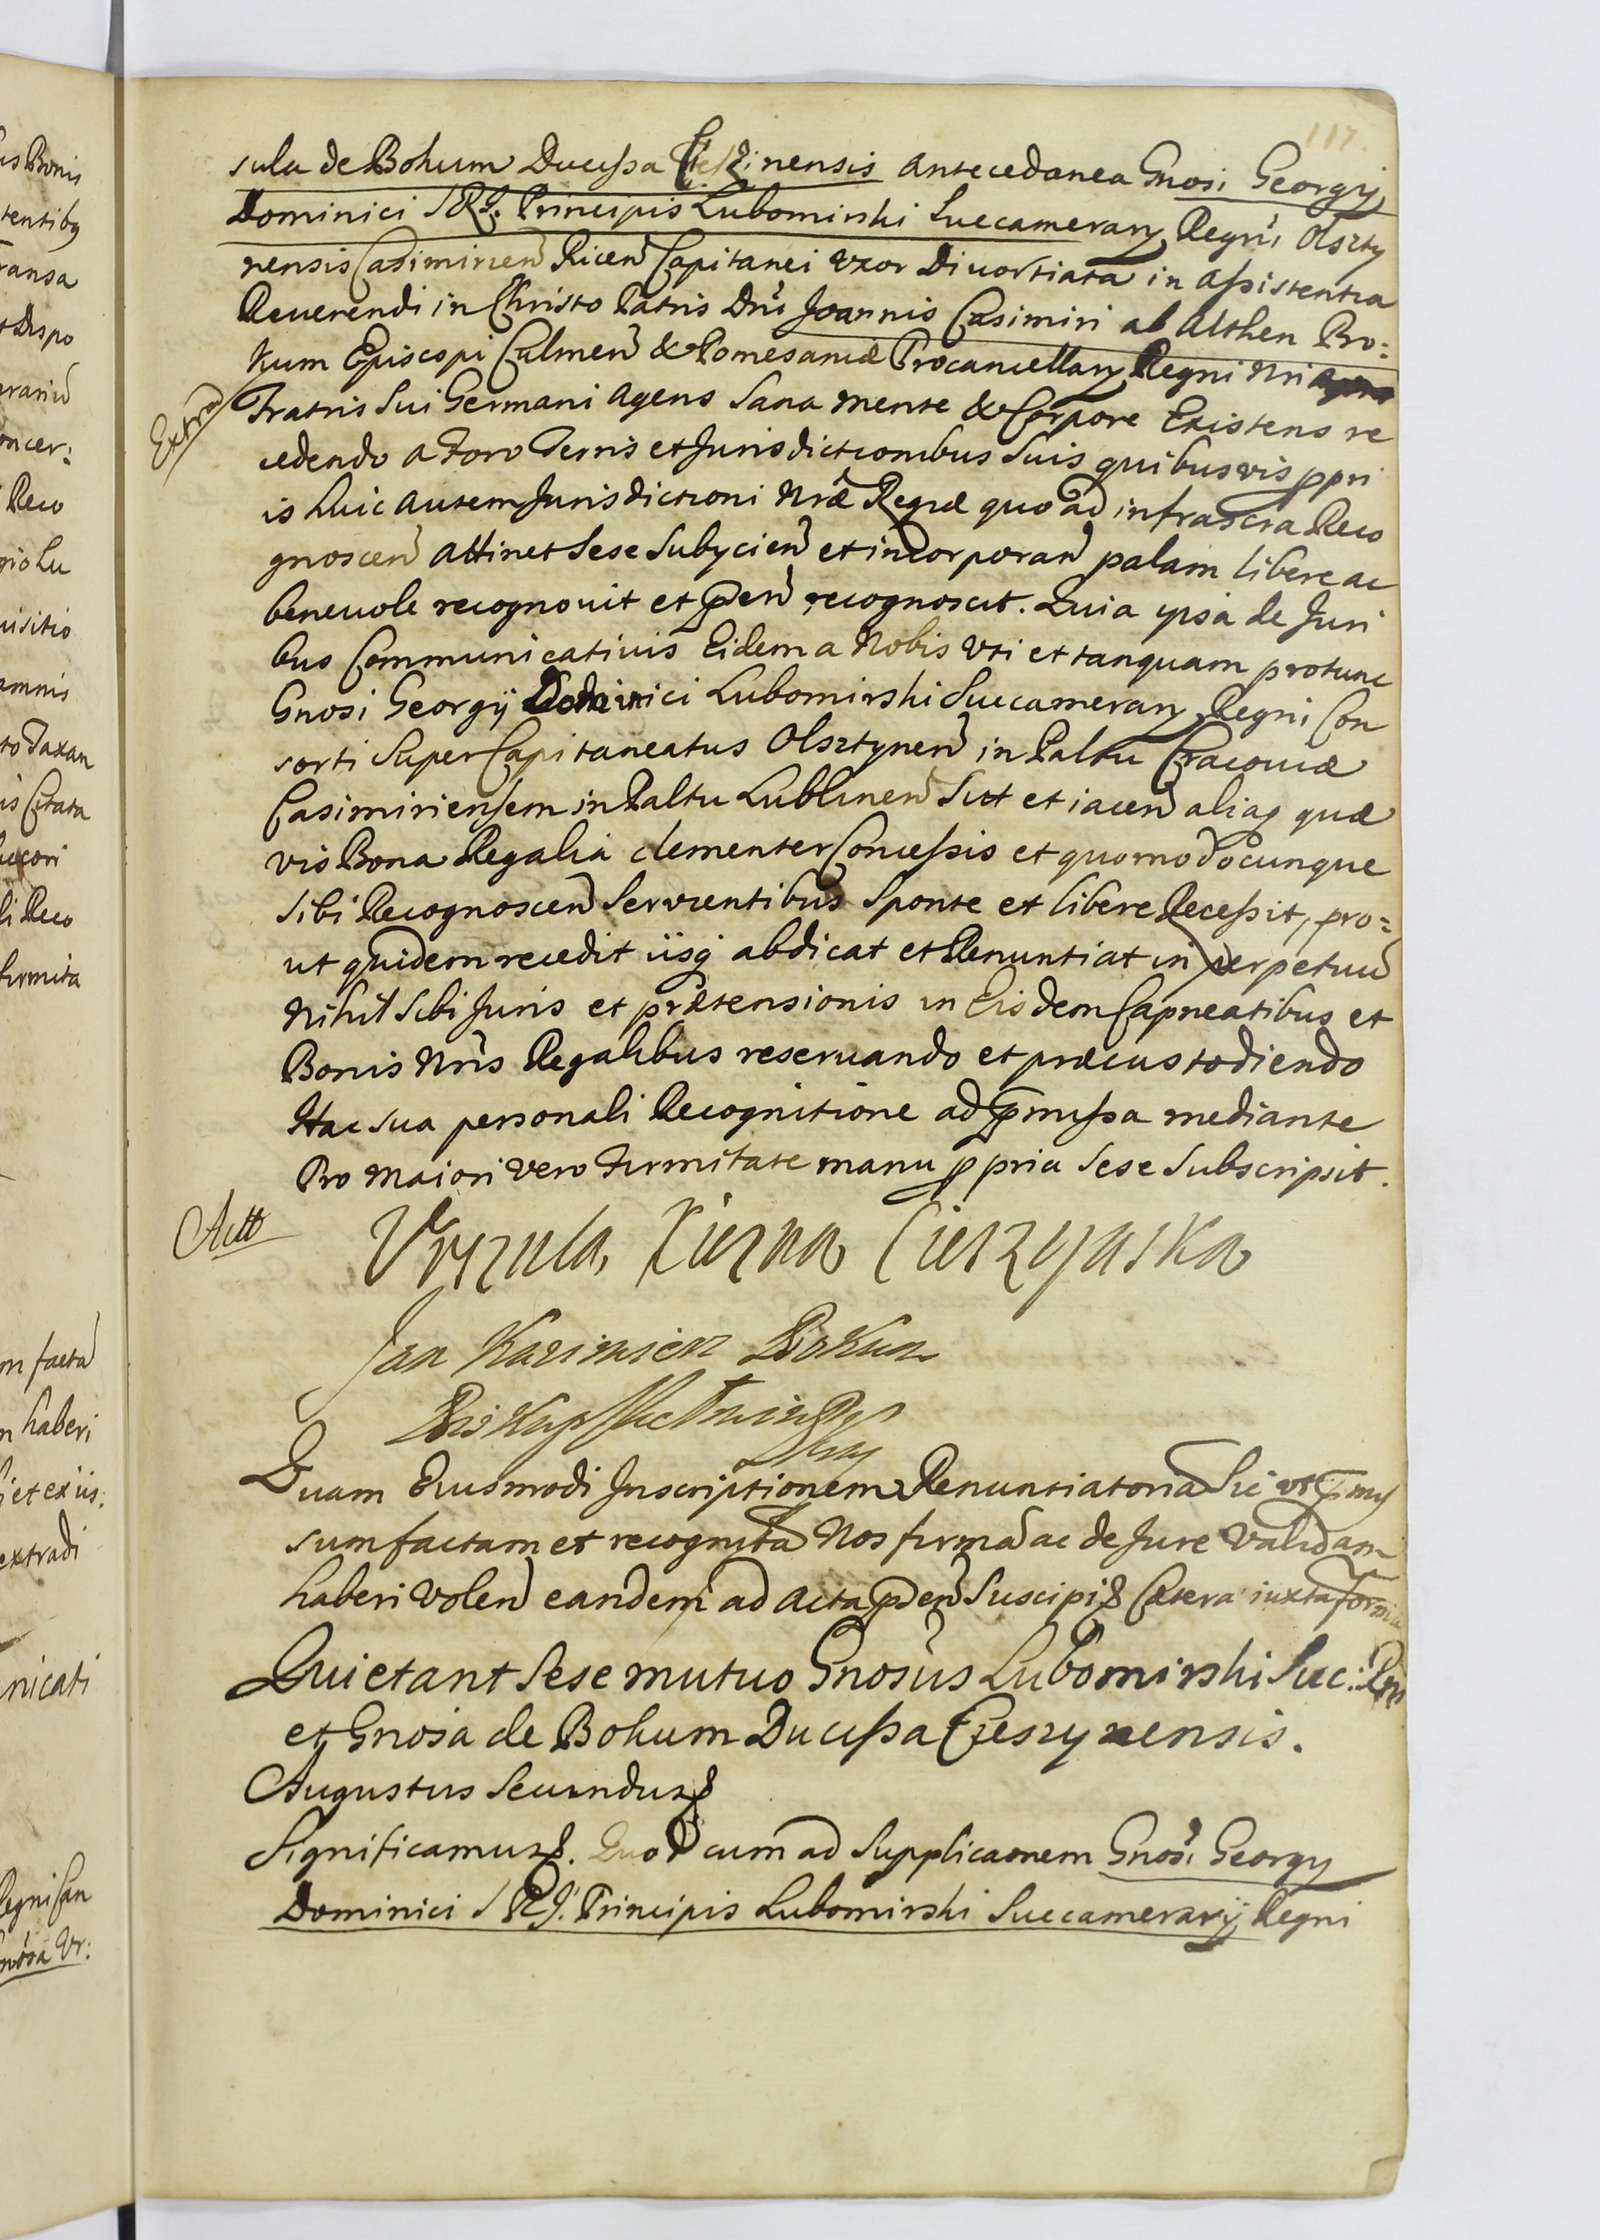 117.
sula de Bohum Ducissa Cieszinensis antecedanea Gnosi Georgij
Dominici S R I. Principis Lubomirski Succamerarij Regni Olszty
nensis Casimirien Ricen Capitanei vxor Divortiata in assistentia
Reuerendi in Christo Patris Dni Joannis Casimiri ab Althen Bo:
kum Episcopi Culmen & Pomesaniæ Procancellarij Regni Nri
Extrad
Fratris Sui Germani agens Sana mente & Corpore Existens re
cedendo a Foro Terris et Jurisdictionibus Suis quibusvis ppri
is huic autem Jurisdictioni Nræ Regiæ quo ad infrascra Reco
gnoscen attinet Sese Subycien et incorporan palam libere ac
beneuole recognouit et pden recognoscit. Quia ipsa de Juri
bus Communicativis Eidem a Nobis Vti et tanquam protunc
Gnosi Georgij Dominici Lubomirski Succamerarij Regni Con
sorti Super Capitaneatus Olsztynen in Paltu Cracouiæ
Casimiriensem in Paltu Lublinen Sit et iacen aliaq quæ
vis Bona Regalia clementer Concessis et quomodocunque
Sibi Recognoscen Servientibus Sponte et libere Recessit, pro=
ut quidem recedit iisq abdicat et Renuntiat in perpetuu
Nihil Sibi Juris et prætensionis in Eisdem Capneatibus et
Bonis Nris Regalibus reseruando et præcustodiendo
Hac sua personali Recognitione ad pmissa mediante
Pro Maiori vero Firmitate manu ppria Sese Subscripsit.
Actt
Vrszula Xiezna Cieszynska
Jan Kazimierz Bokum
Biskup
Quam Eiusmodi Inscriptionem Renuntiatoria Sic vt pmis
sum factam et recognita Nos firma ac de Jure Validam
haberi Volen eandem ad acta pden Suscipi & Cætera iuxta forma
Quietant Sese mutuo Gnosus Lubomirski Suc: Rni
et Gnosa de Bokum Ducissa Cieszynensis.
Augustus Secundus &
Significamus &. Quod cum ad Supplicaonem Gnosi Georgy
Dominici S R J. Principis Lubomirski Succamerarij Regni